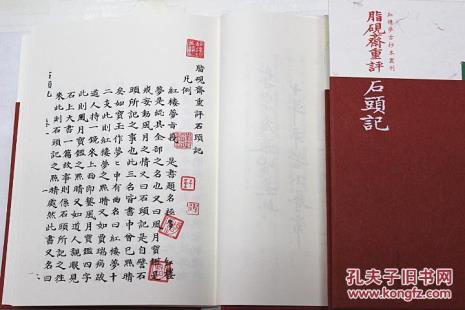 脂硯齋重評石頭記
凡例
紅樓夢旨義 是書題名極
紅樓
夢是總其全部之名也又曰風月寶鑑是
戒妄動風月之情又曰石頭記是自譬石
頭所記之事也此三名皆書中曾已點睛
矣如寶玉作夢夢中有曲名曰紅樓夢十
二支此則紅樓夢之點睛又如賈瑞病跛
道人持一鏡來上面即鏨風月寶鑑四字
此則風月寶鑑之點睛又如道人親眼見
石上大書一篇故事則係石頭所記之往
來此則石頭記之點睛處然此書又名曰
石頭記
紅樓夢古抄本叢刊
脂硯齋重評
石頭記
孔夫子旧书网
www.kongfz.com